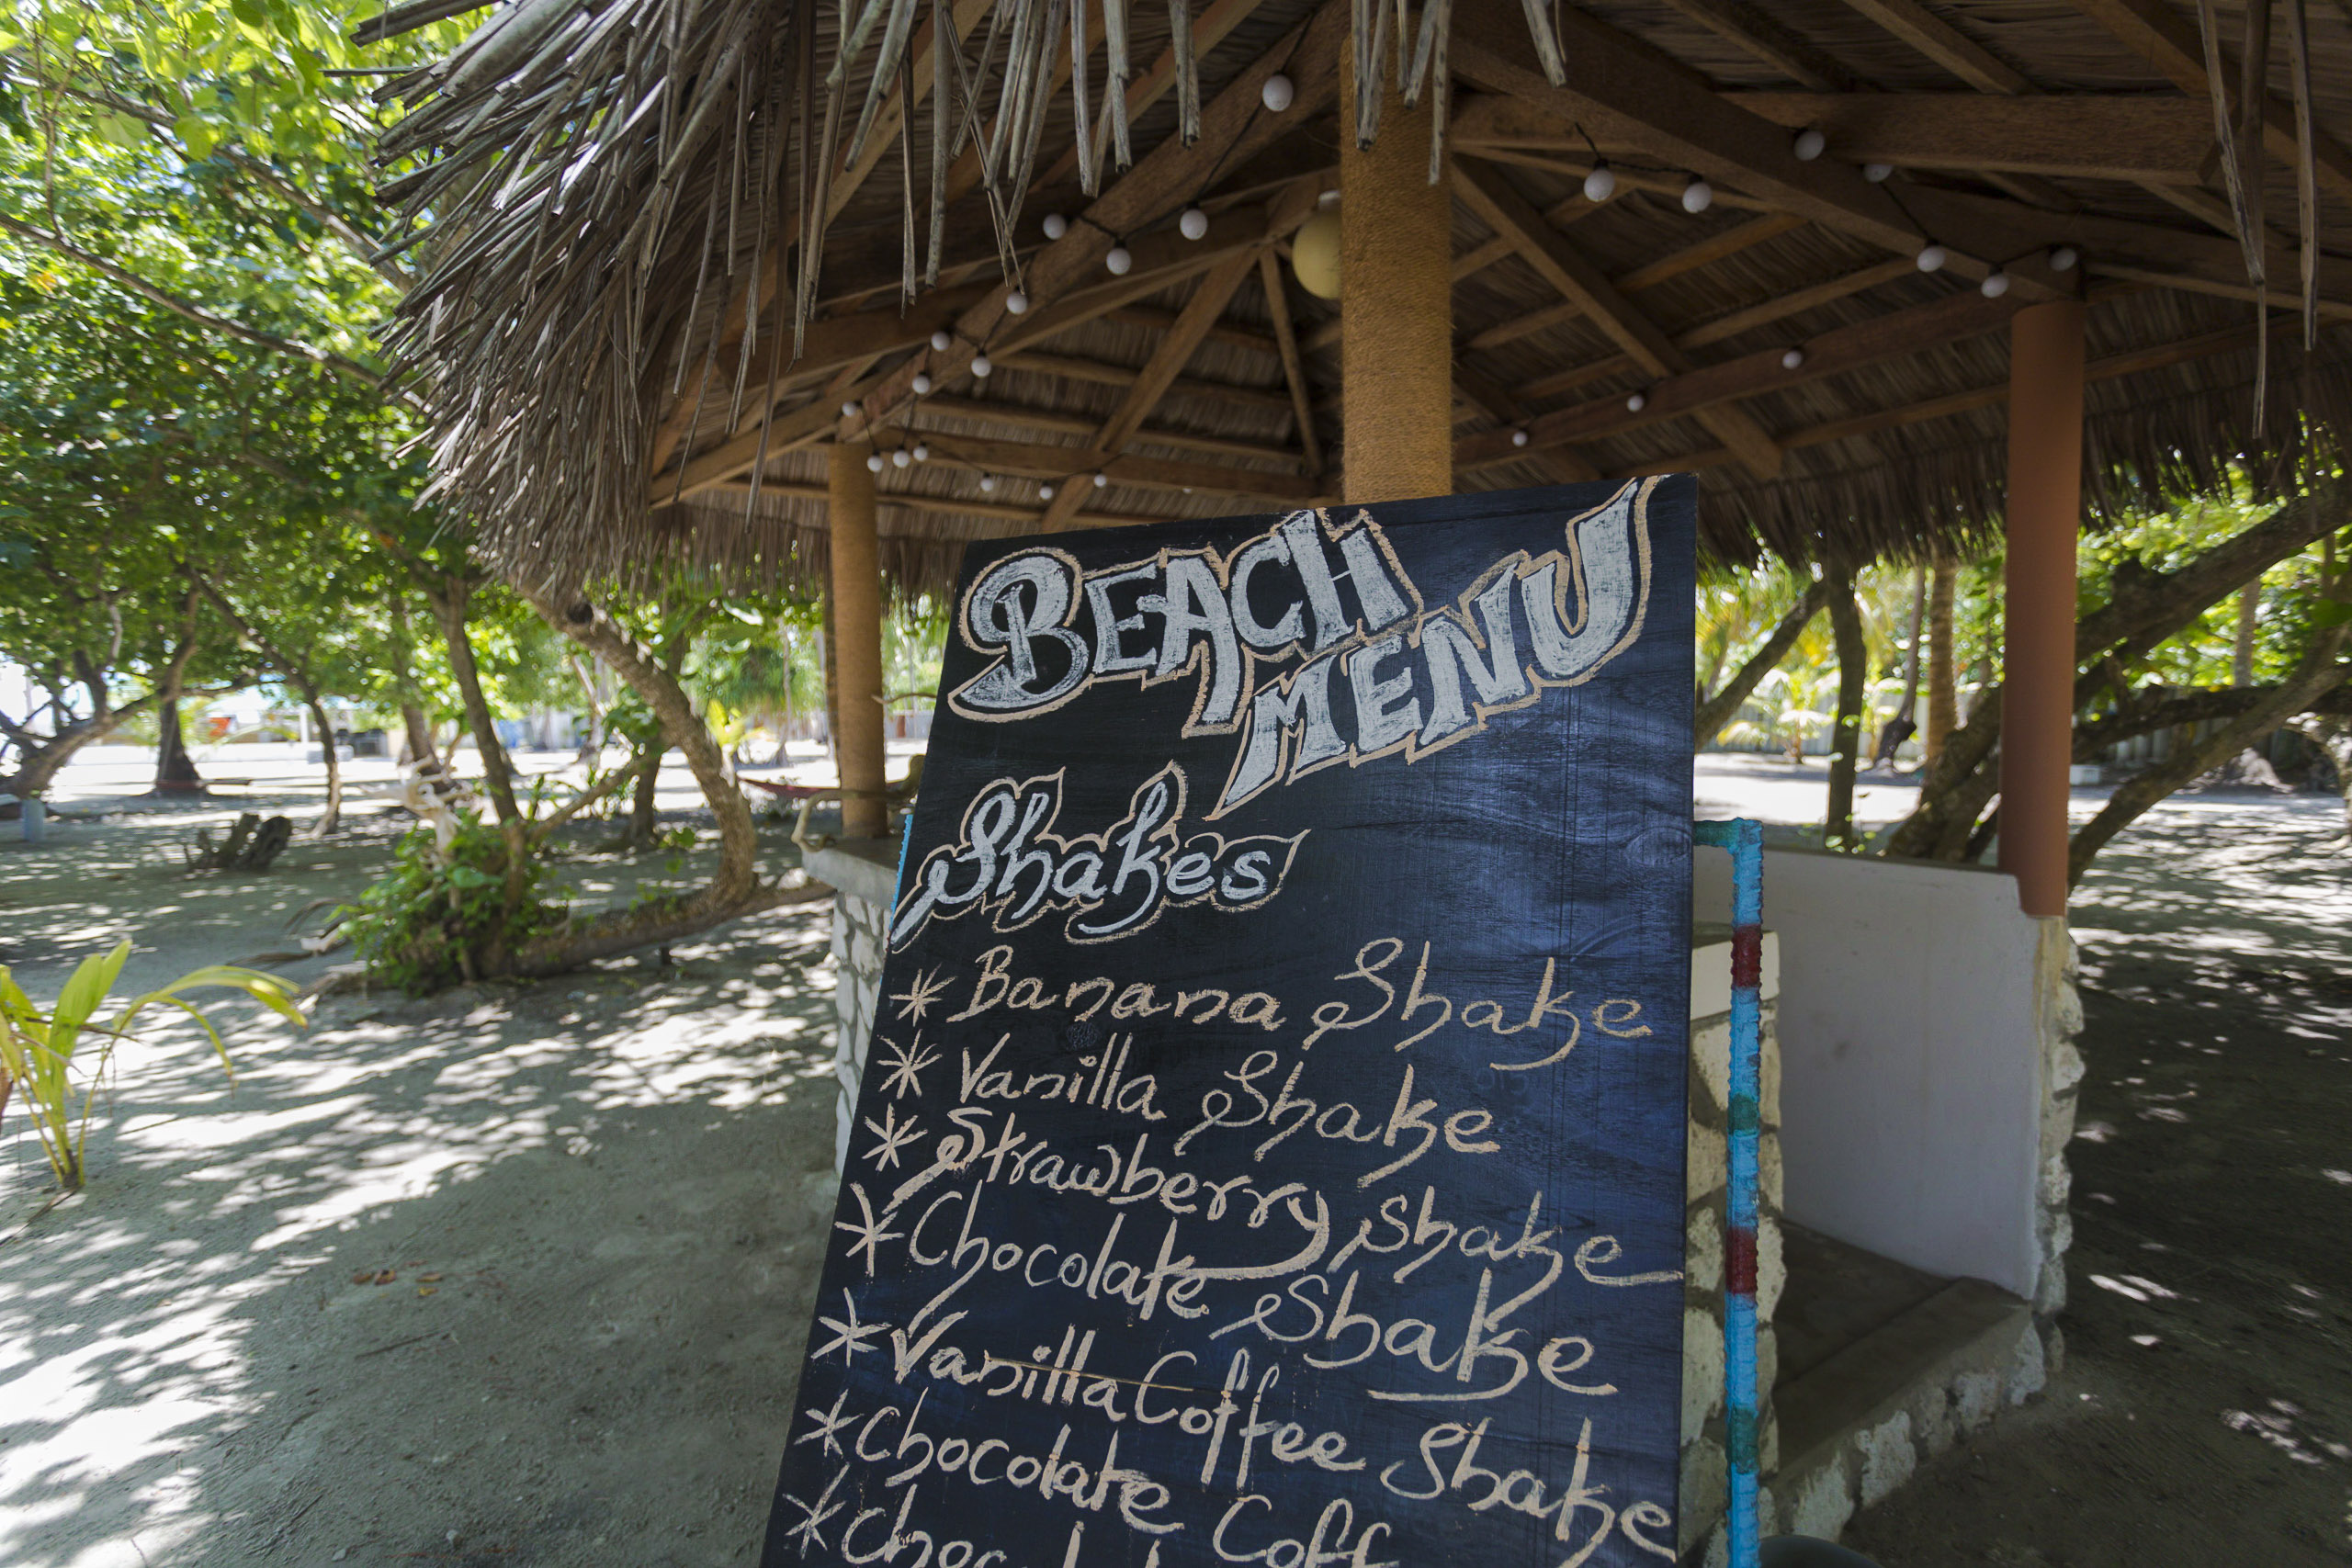 BEACH
MENU
Shakes
* Banana Shake
* Vanilla Shake
* Strawberry Shake
* Chocolate Shake
* Vanilla Coffee Shake
* Chocolate
*